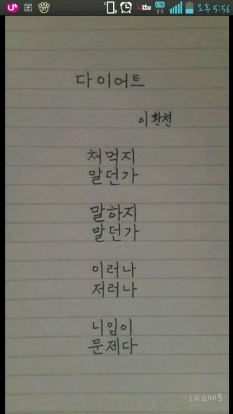 오후 5:56
다이어트
이환천
쳐먹지
말던가
말하지
말던가
이러나
저러나
니입이
문제다
LG G메모